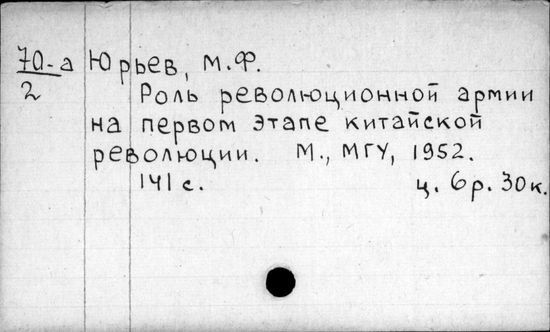 70-а Юрьев, М.Ф.
2
Роль революционной армии
на первом этапе китайской
революции. М., МГУ, 1952.
141 с. ц. 6р. 30к.